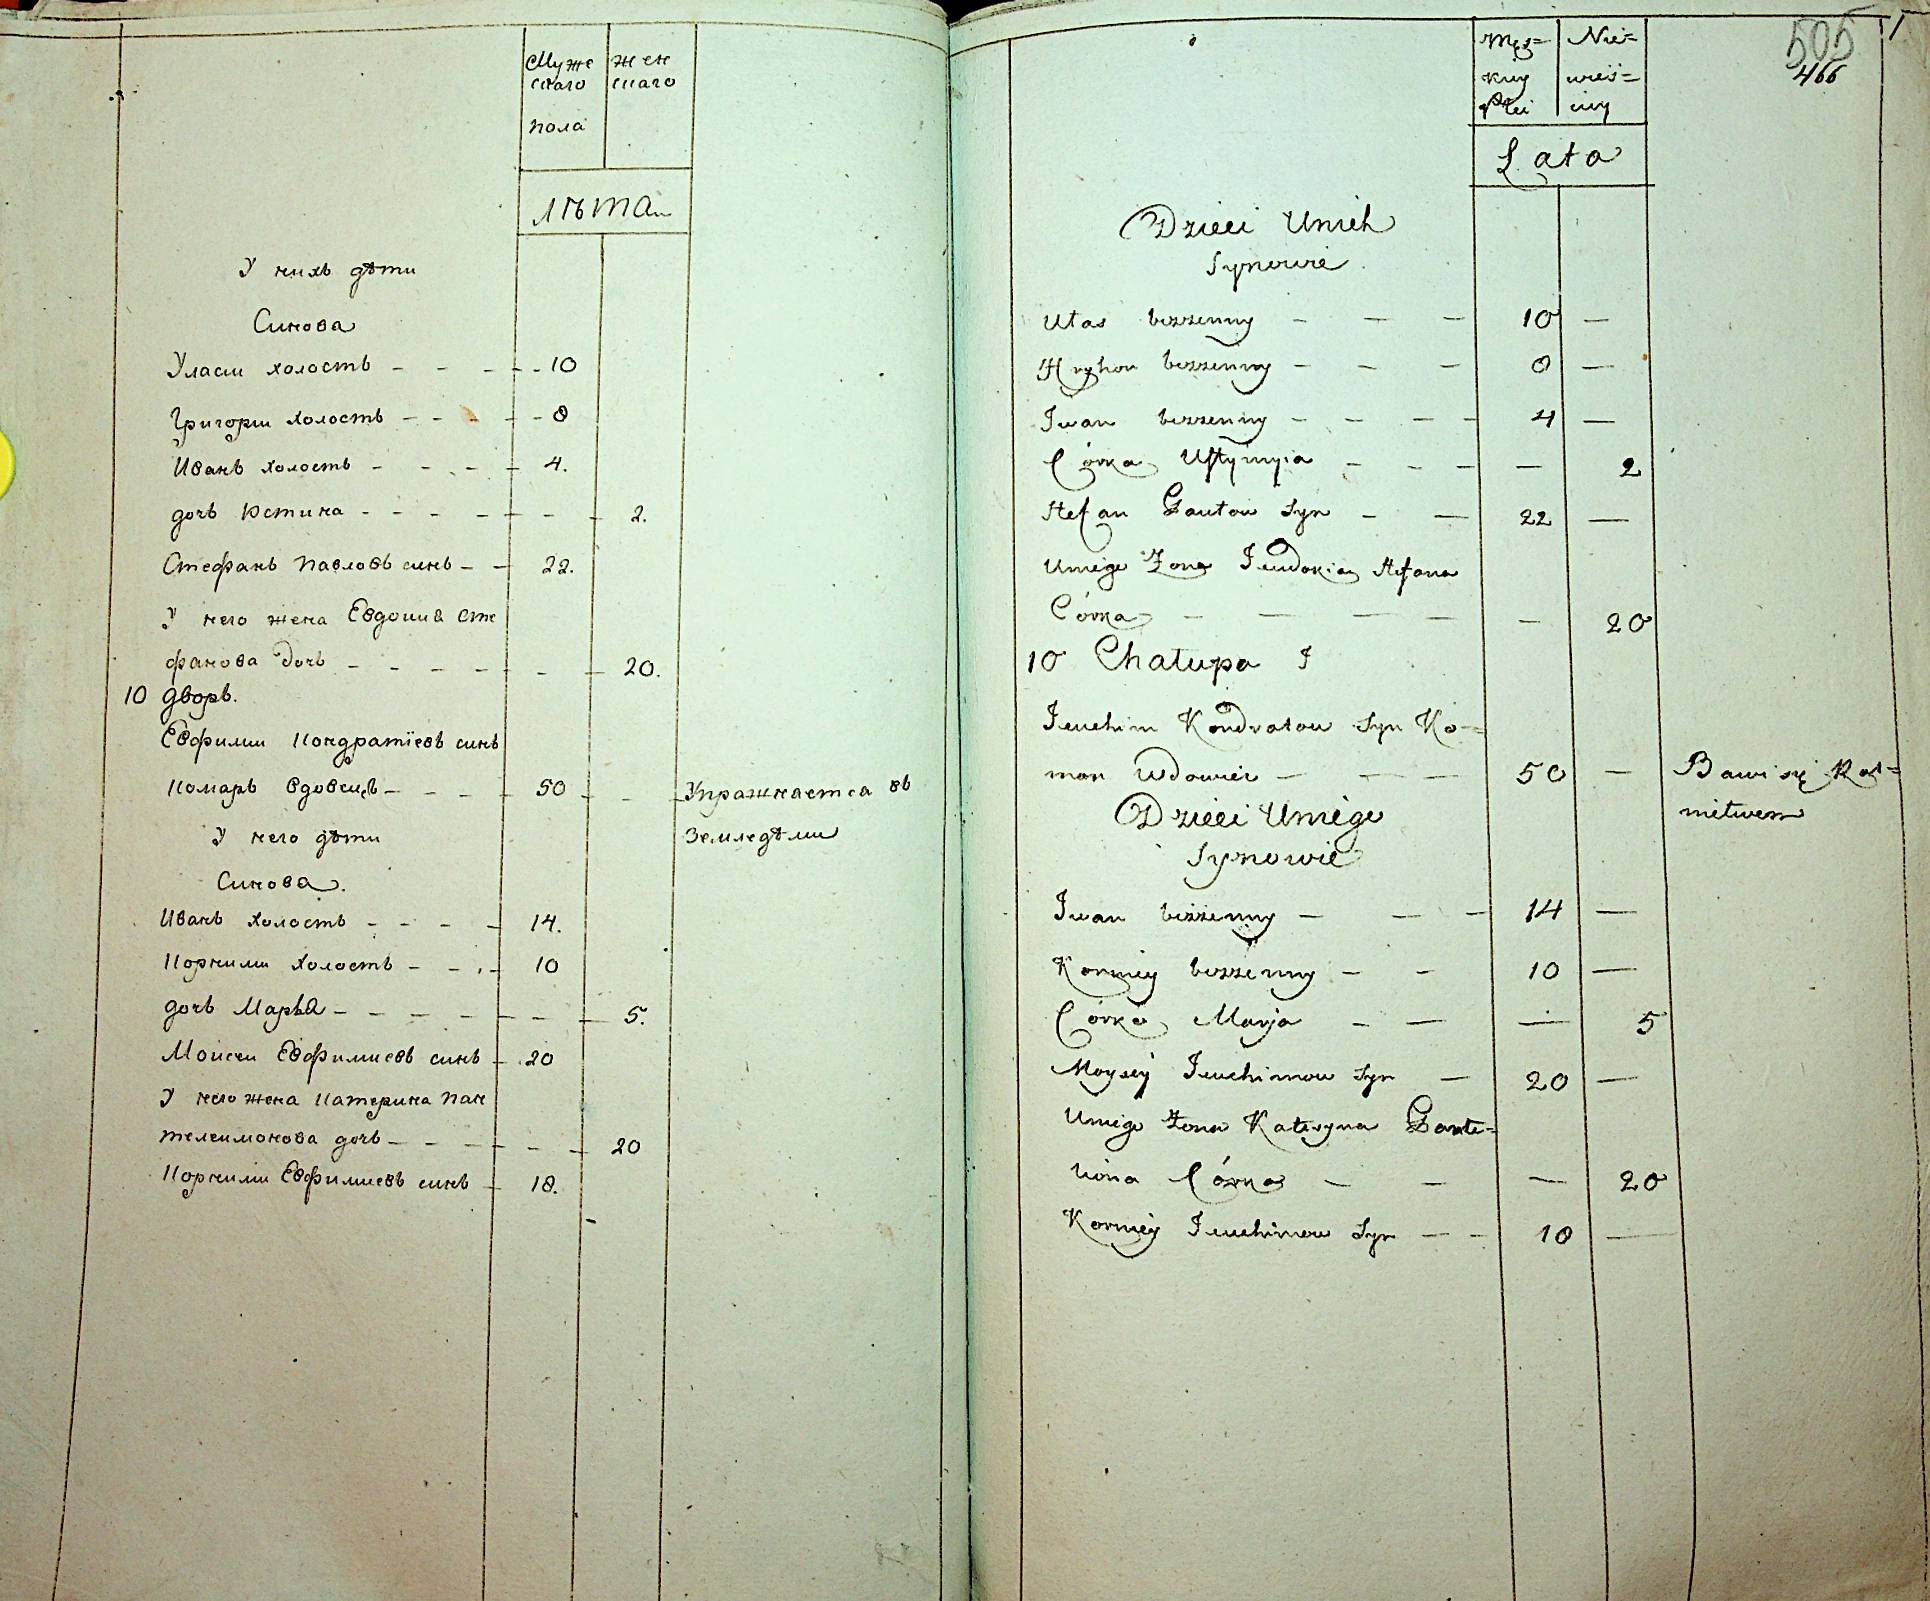 Муже жен
скаго скаго
пола
лѣта
У нихъ дѣти
Синова
Уласии холостъ - - - - 10
Григории холостъ - - - - 8
Иванъ холостъ - - - - 4.
дочь Юстина - - - - - - 2.
Стефанъ Павловъ синъ - - 22.
У него жена Евдокиѣ Сте
фанова дочь - - - - - - 20.
10 дворъ.
Евфимии Кондратіевъ синъ
Комаръ вдовецъ - - - - 50 - - - Упражнается въ
земледѣлии
У него дѣти
Синова.
Иванъ холостъ - - - - 14.
Корнили холостъ - - - 10
дочь Марья - - - - - - - 5.
Моисеи Евфимиевъ синъ - 20
У него жена Катерина Пан
телеимонова дочь - - - - - 20
Корнили Евфимиевъ синъ - 18.
505
466
Męs= Nie=
kiey wieś=
Płci ciey
Lata
Dzieci Unich
Synowie
Ułas bezzenny - - - 10 —
Hryhor bezzenny - - - 8 —
Iwan bezzenny - - - - 4 —
Córka Ustymyia - - - — 2
Stefan Pautow Syn - — 22 —
Uniego Zona Jewdokia Stefana
Córka - — — — — 20
10 Chałupa I
Jeuchim Kondratow Syn Ko=
mar Wdowiec — — — 50 — Bawi się Rol=
nictwem
Dzieci Uniego
Synowie
Iwan bezzenny — — - 14 —
Korniey bezzenny — - 10 —
Córka Marja - — — 5
Moysey Jeuchimow Syn — 20 —
Uniego Zona Kateryna Pante=
liona Córka - - — 20
Korniey Jeuchimow Syn — - 18 —